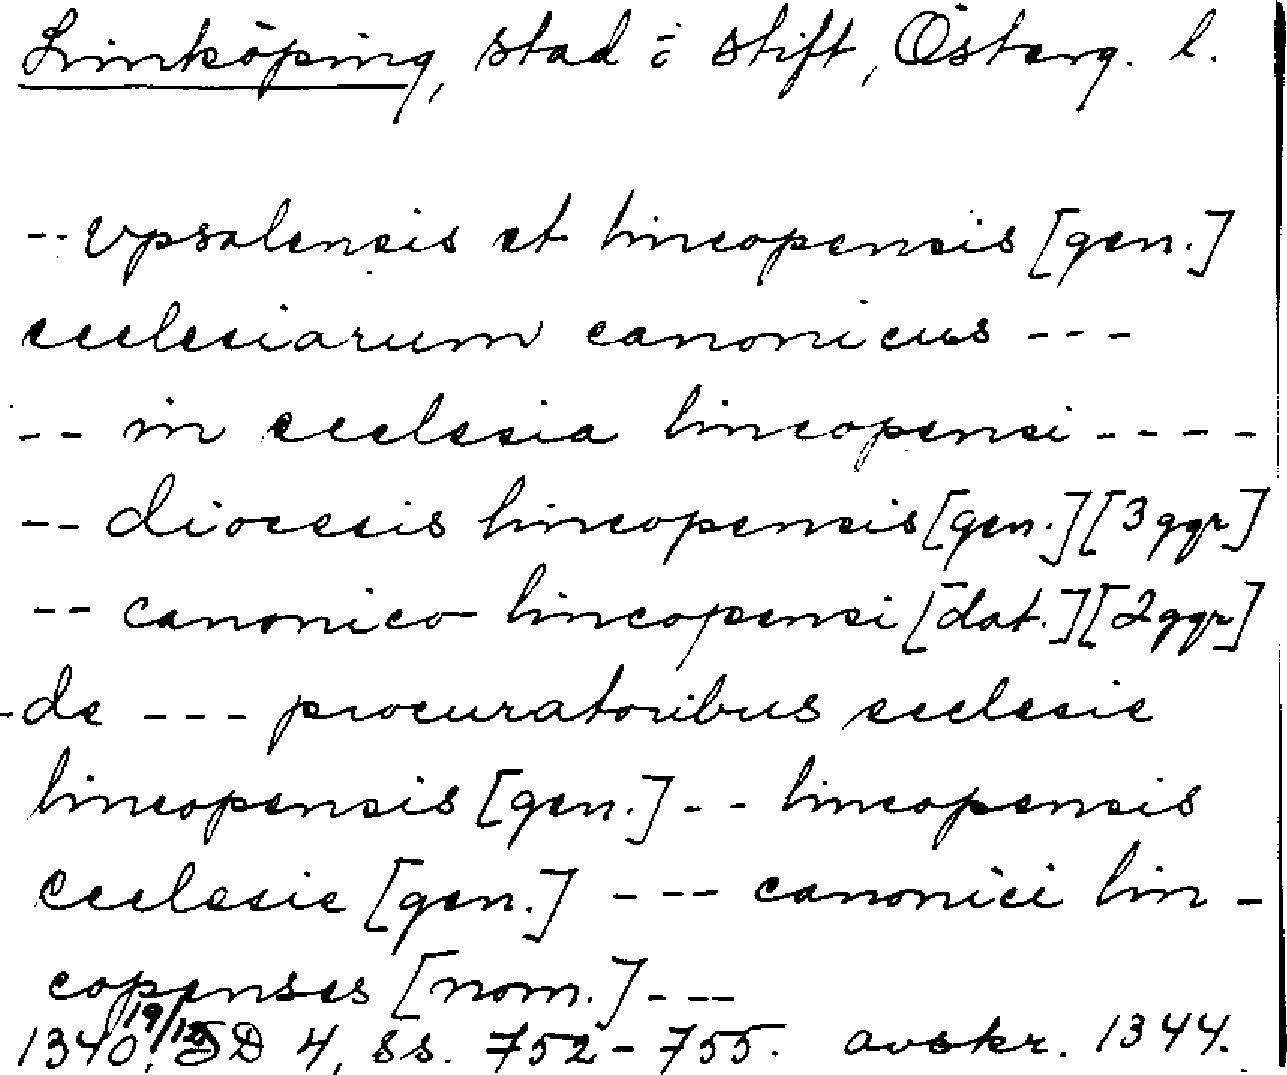 Linköping, stad o. stift, Österg. l.
-- vpsalensis et lincopensis [gen.]
ecclesiarum canonicus ---
-- in ecclesia lincopensi ----
-- diocesis lincopensis [gen.] [3 ggr]
-- canonico lincopensi [dat.] [2 ggr]
-de --- procuratoribus ecclesie
lincopensis [gen.] -- lincopensis
ecclesie [gen.] --- canonici lin-
copenses [nom.] ---
1340 19/12. SD 4, ss. 752-755. avskr. 1344.